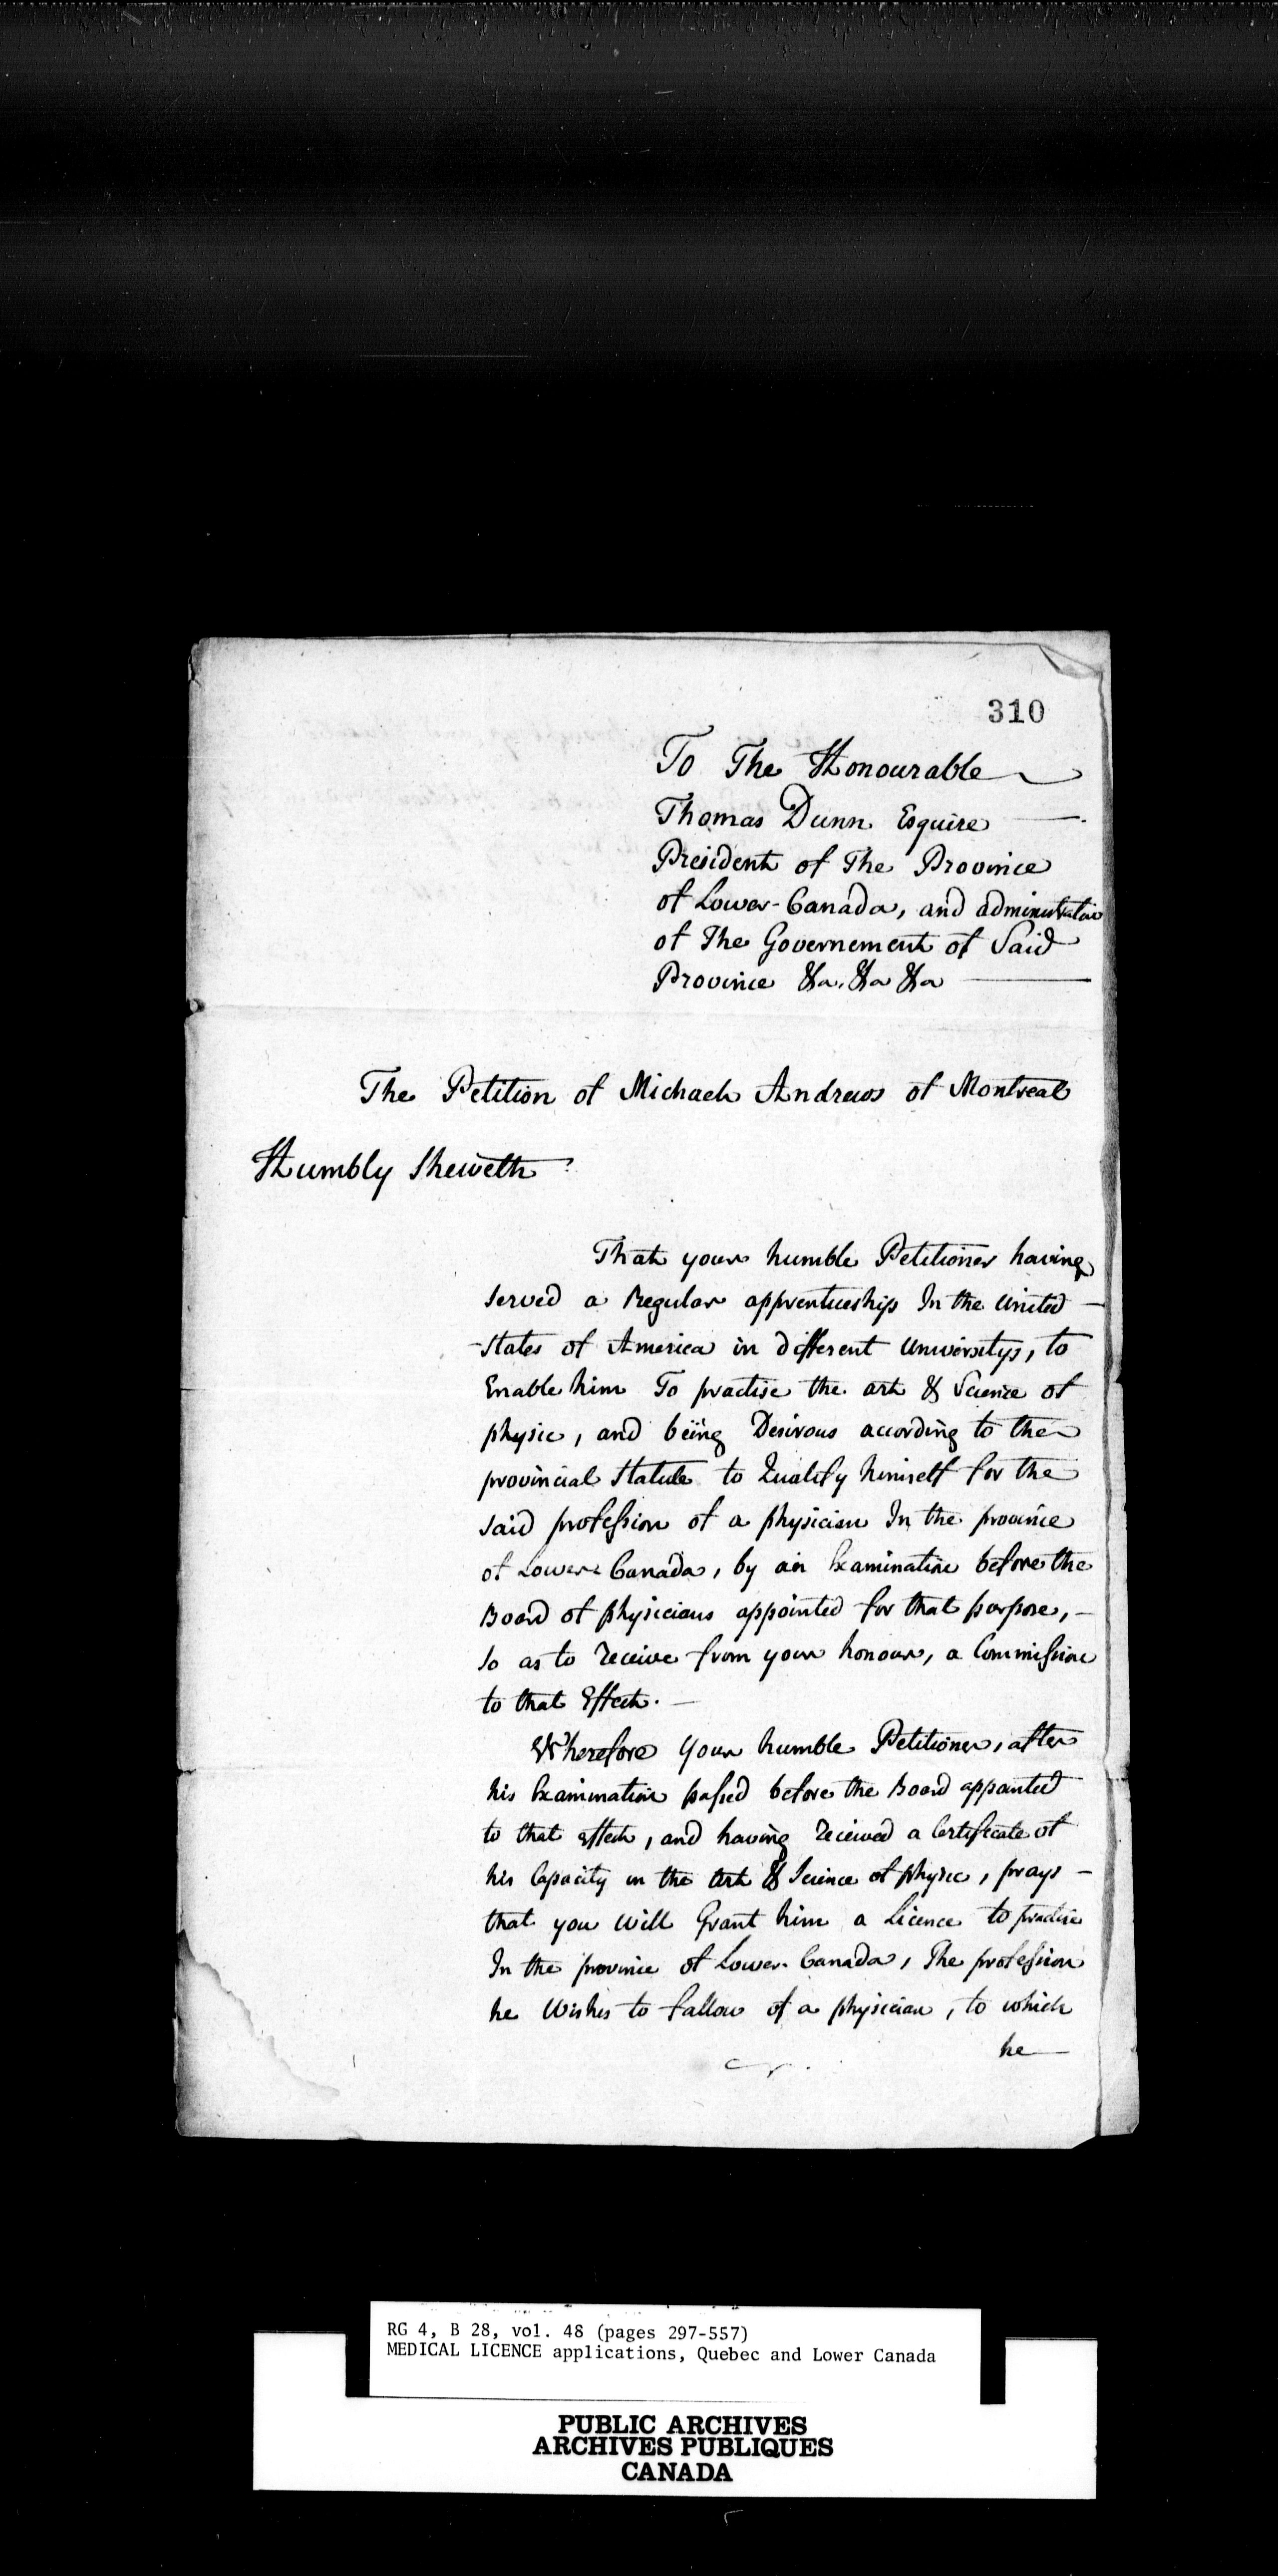 310
To The Honourable
Thomas Dunn Esquire —
President of The Province
of Lower-Canada, and administrator
of The Governement of Said
Province &a. &a &a —
The Petition of Michael Andrews of Montreal
Humbly Sheweth
That your humble Petitioner having
Served a Regular apprenticeship In the United —
States of America in different Universitys, to
Enable him To practise the art & Science of
physic, and being Desirous according to the
provincial Statute to Qualify himself for the
Said profession of a physician In the province
of Lower Canada, by an Examination before the
Board of physicians appointed for that purpose, —
So as to receive from your honour, a Commission
to that Effect. —
Wherefore Your humble Petitioner, after
his Examination passed before the Board appointed
to that effect, and having received a Certificate of
his Capacity in the Art & Science of physic, prays —
that you Will Grant him a Licence to practise
In the province of Lower-Canada, The profession
he Wishes to fallow of a physician, to which
he —
RG 4, B 28, vol. 48 (pages 297-557)
MEDICAL LICENCE applications, Quebec and Lower Canada
PUBLIC ARCHIVES
ARCHIVES PUBLIQUES
CANADA